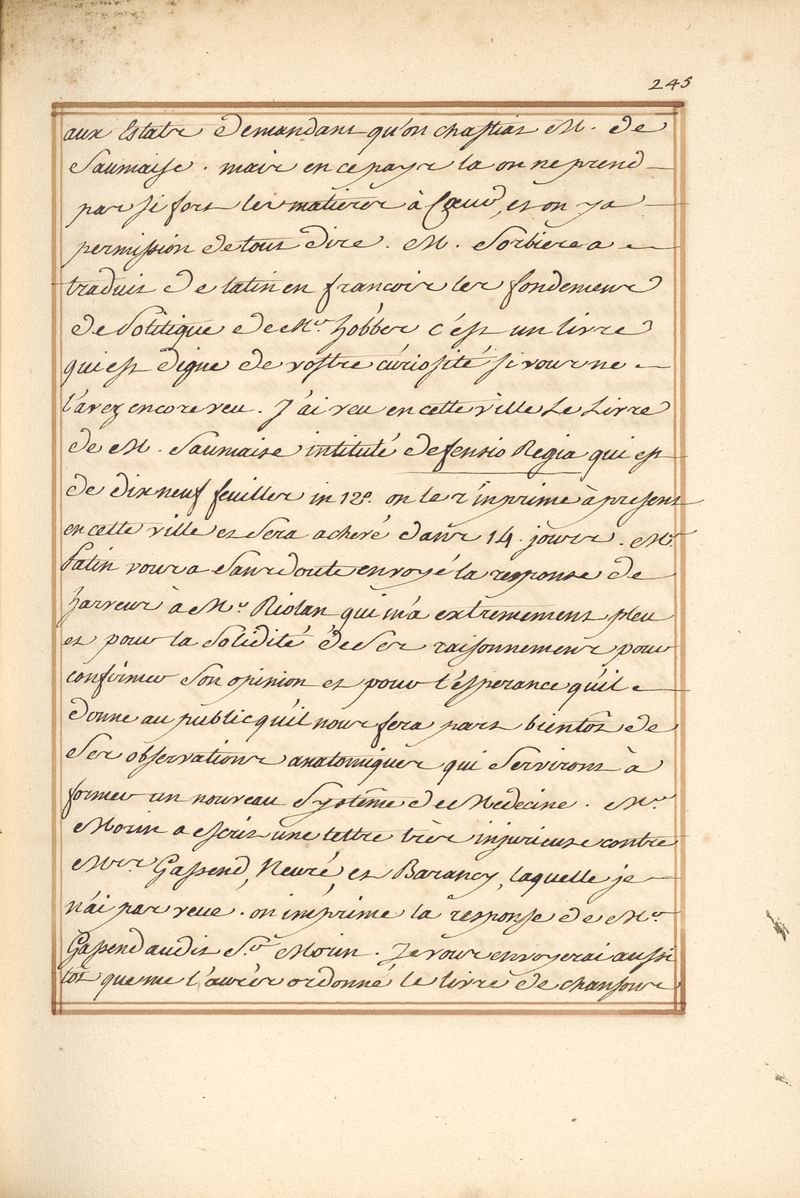 245
aux Estats demandant qu'on chastiat M. de
Saumaise. mais en ce pays la on ne prend
pas si fort les matieres à Cœur, et on y a
permission de tout dire. M. Sorbiere a
traduit de latin en francois les fondemens
de Politique de Mr. hobbes c'est un livre
qui est digne de vostre curiosité si vous ne
l'avez encore veu. J'ai veu en cette ville Le Livre
de M. Saumaise intitulé defensio Regia qui est
de dix neuf feuilles in 12o. on le r'inprime à present
en cette ville et sera achevé dans 14. jours. Mr.
Patin vous a sans doute envoyé la response de
harveus à Mr. Riolan qui m'a extremement pleu
et pour la solidité de ses raisonnemens pour
confirmer son opinion et pour l'esperance qu'il
donne au public qu'il nous fera part bientôt de
ses observations anatomiques qui serviront à
former un nouveau systême de Medecine. Mr.
Morin a escrit une lettre très injurieuse contre
Mrs. Gassend, Neuré et Barancy, laquelle je
n'ai pas veue. on imprime la response de Mr.
Gassend audit Sr. Morin. Je vous envoyerai aussi
tôt que me l'aurés ordonné le livre de chansons